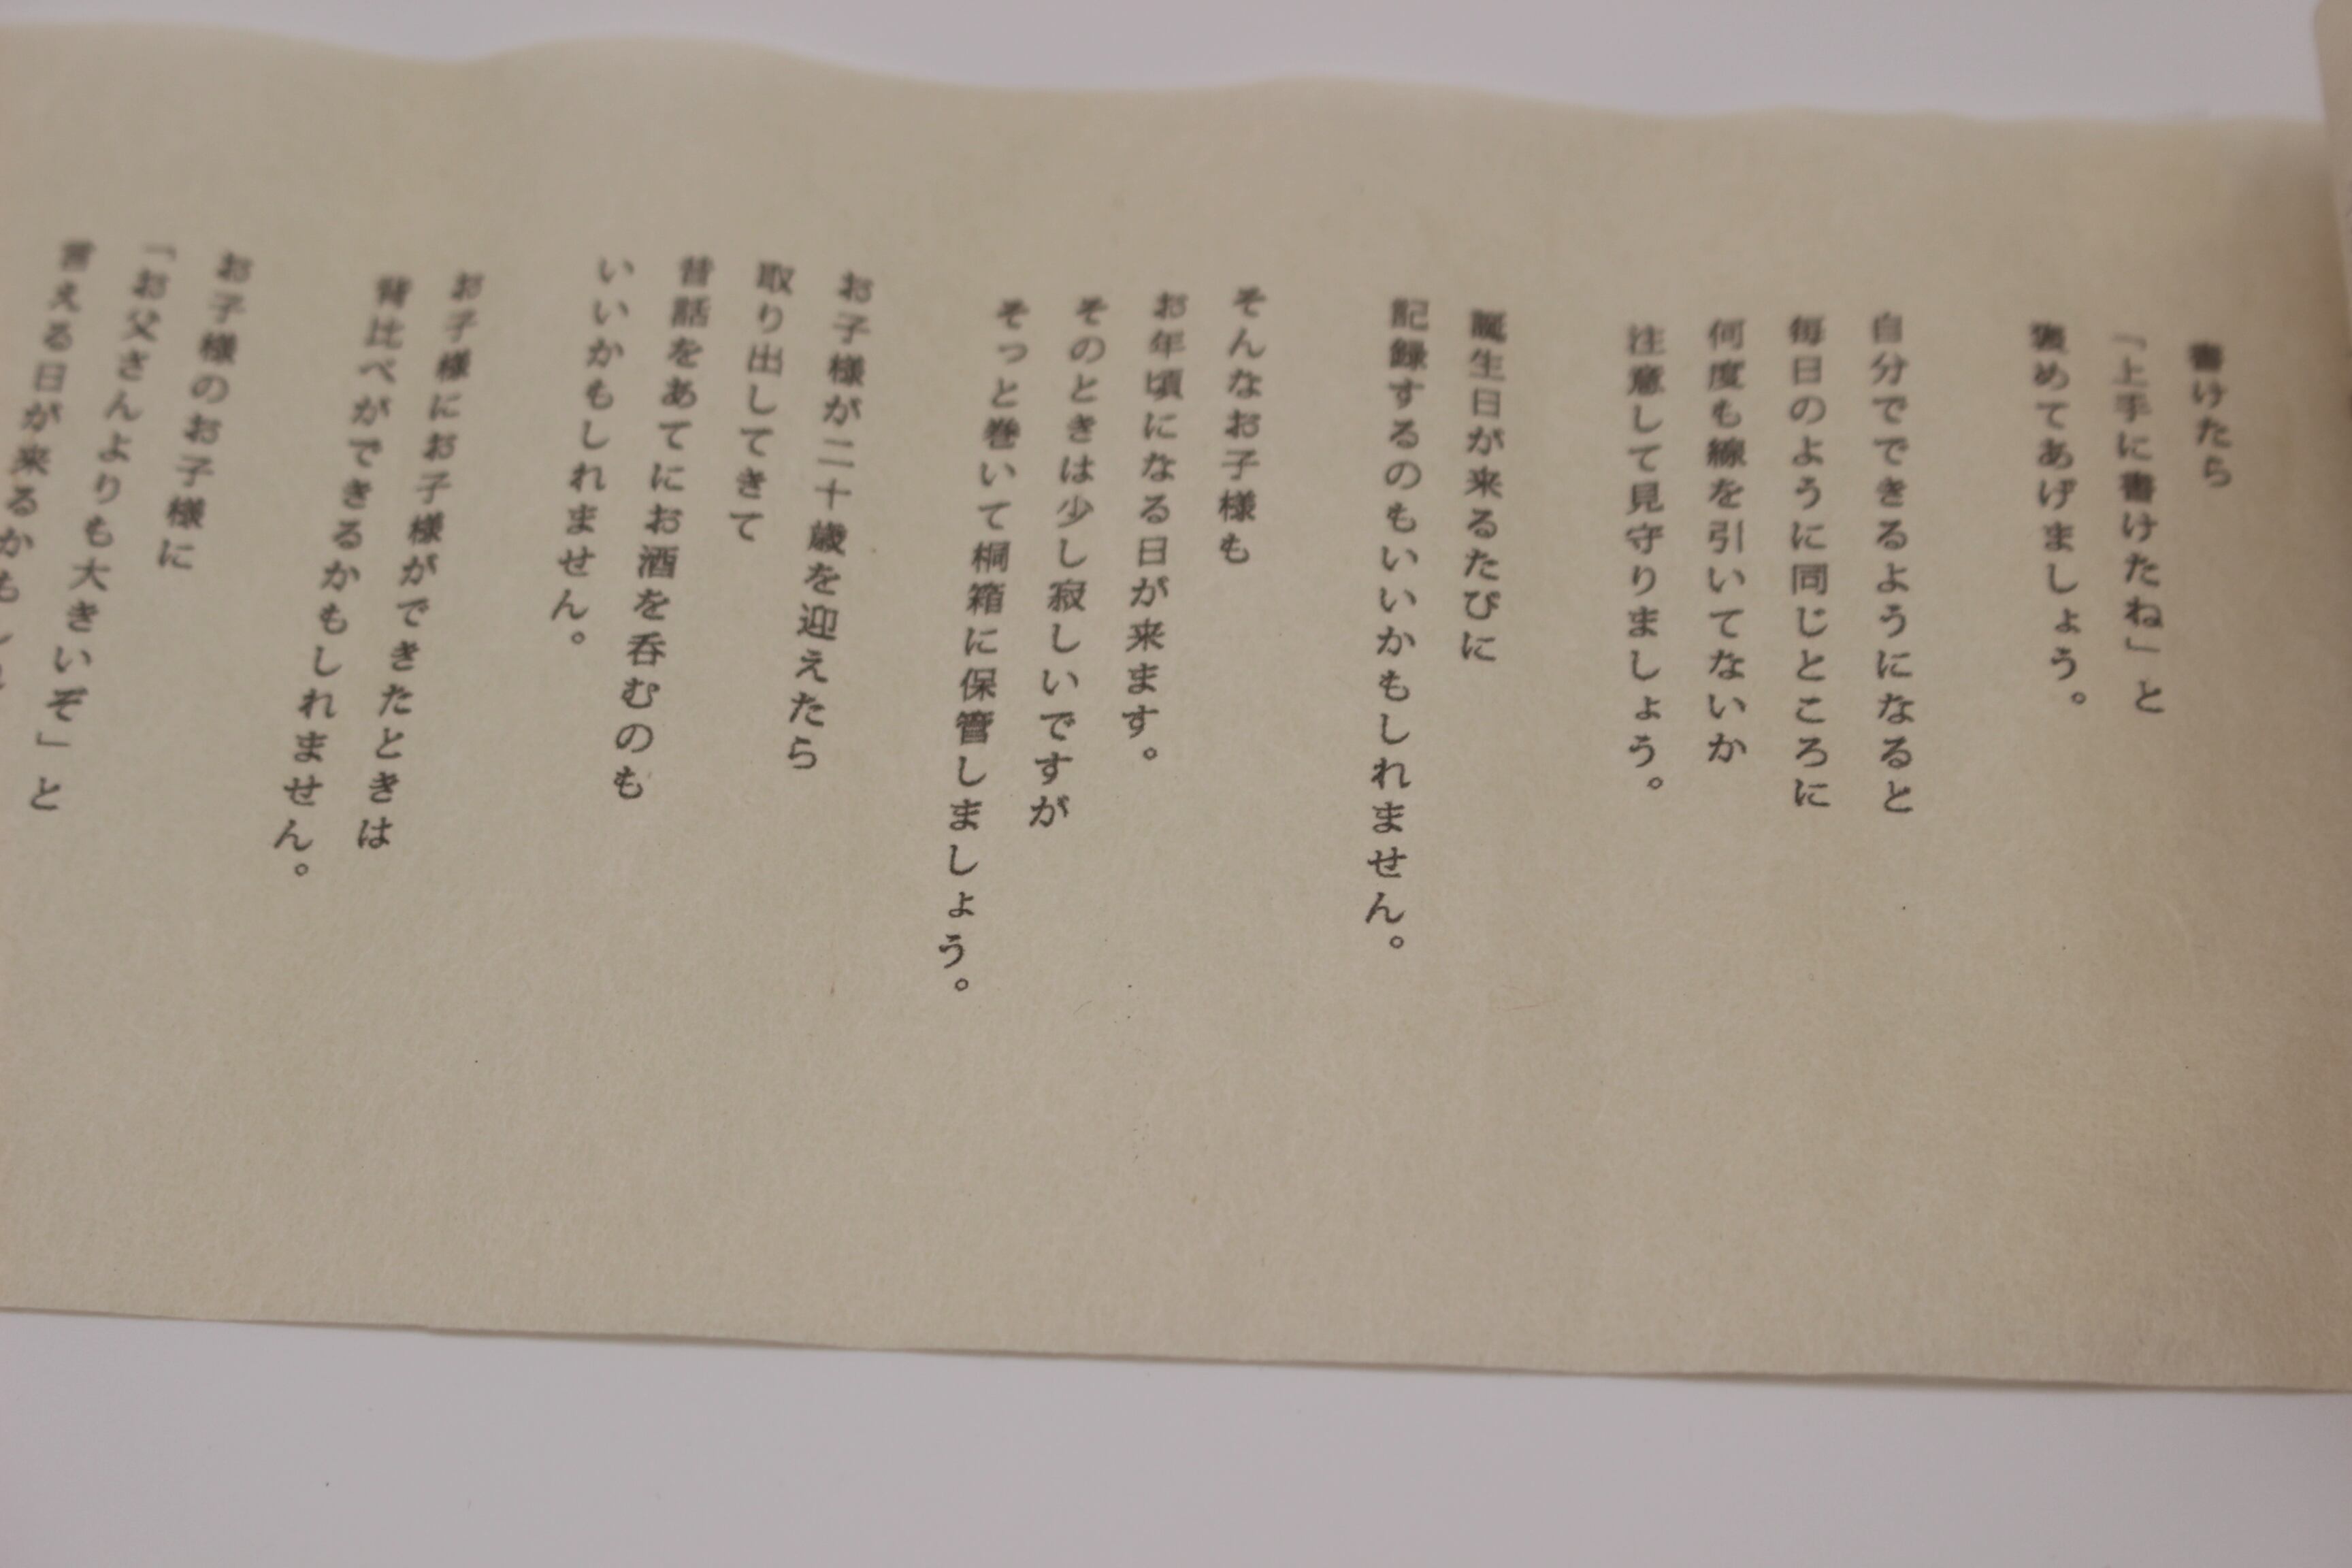 書けたら
「上手に書けたね」と
褒めてあげましょう。
自分でできるようになると
毎日のように同じところに
何度も線を引いてないか
注意して見守りましょう。
誕生日が来るたびに
記録するのもいいかもしれません。
そんなお子様も
お年頃になる日が来ます。
そのときは少し寂しいですが
そっと巻いて桐箱に保管しましょう。
お子様が二十歳を迎えたら
取り出してきて
昔話をあてにお酒を呑むのも
いいかもしれません。
お子様にお子様ができたときは
背比べができるかもしれません。
お子様のお子様に
「お父さんよりも大きいぞ」と
言える日が来るかもしれ